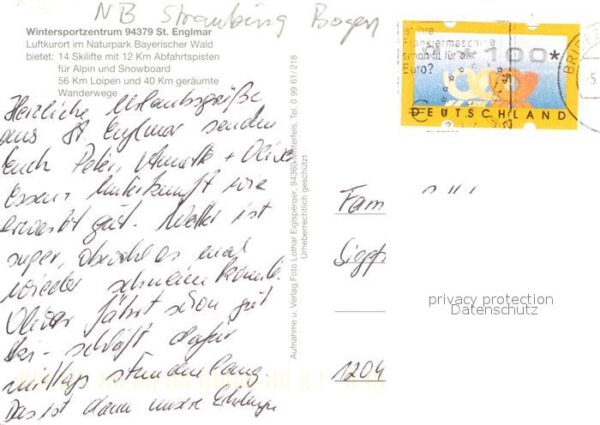 NB Straubing Bogen
Wintersportzentrum 94379 St. Englmar
Luftkurort im Naturpark Bayerischer Wald
bietet: 14 Skilifte mit 12 Km Abfahrtspisten
für Alpin und Snowboard
56 Km Loipen und 40 Km geräumte
Wanderwege
Herzliche Urlaubsgrüße
aus St Englmar senden
Euch Peter, Annette + Oliver
Essen, Unterkunft wie
erwartet gut. Wetter ist
super, obwohl es mal
wieder schneien könnte.
Oliver fährt schon gut
Ski - schläft dafür
mittags stundenlang
Das ist dann unsere Erholung
Aufnahme u. Verlag Foto Lothar Eiglsperger, 94360 Mitterfels, Tel. 0 99 61/218
Urheberrechtlich geschützt
Frankiermaschine
schon fit für den
Euro?
*100*
DEUTSCHLAND
BRIEF
Fam
Sigg
privacy protection
Datenschutz
1204